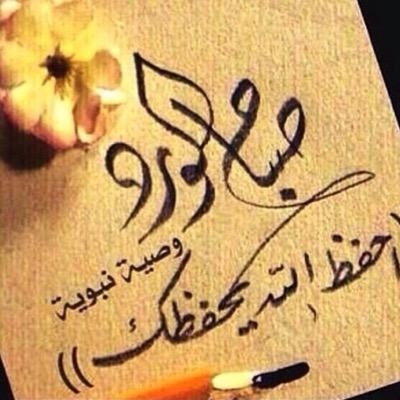 صباح الورد
وصية نبوية
احفظ الله يحفظك ))